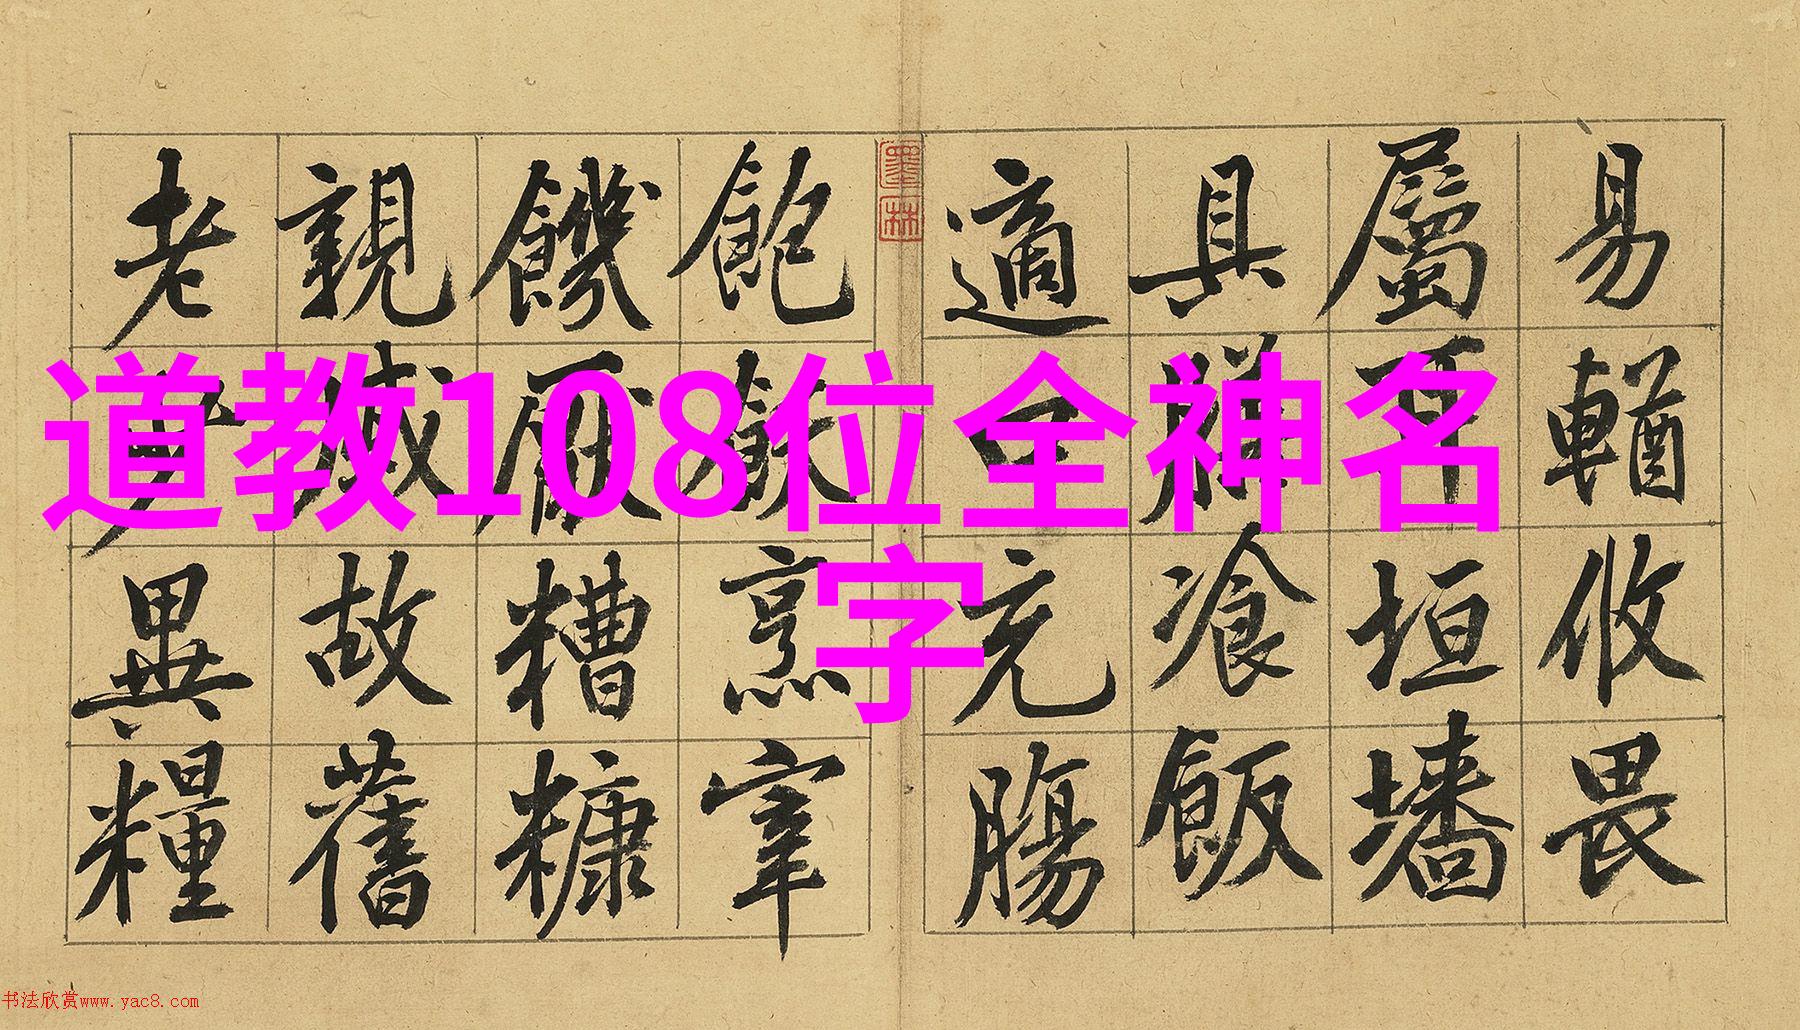 道教108位全神名
字
易輶攸畏
屬耳垣墻
具膳飡飯
適口充腸
墨林
飽飫烹宰
饑厭糟糠
親戚故舊
老少異糧
书法欣赏www.yac8.com